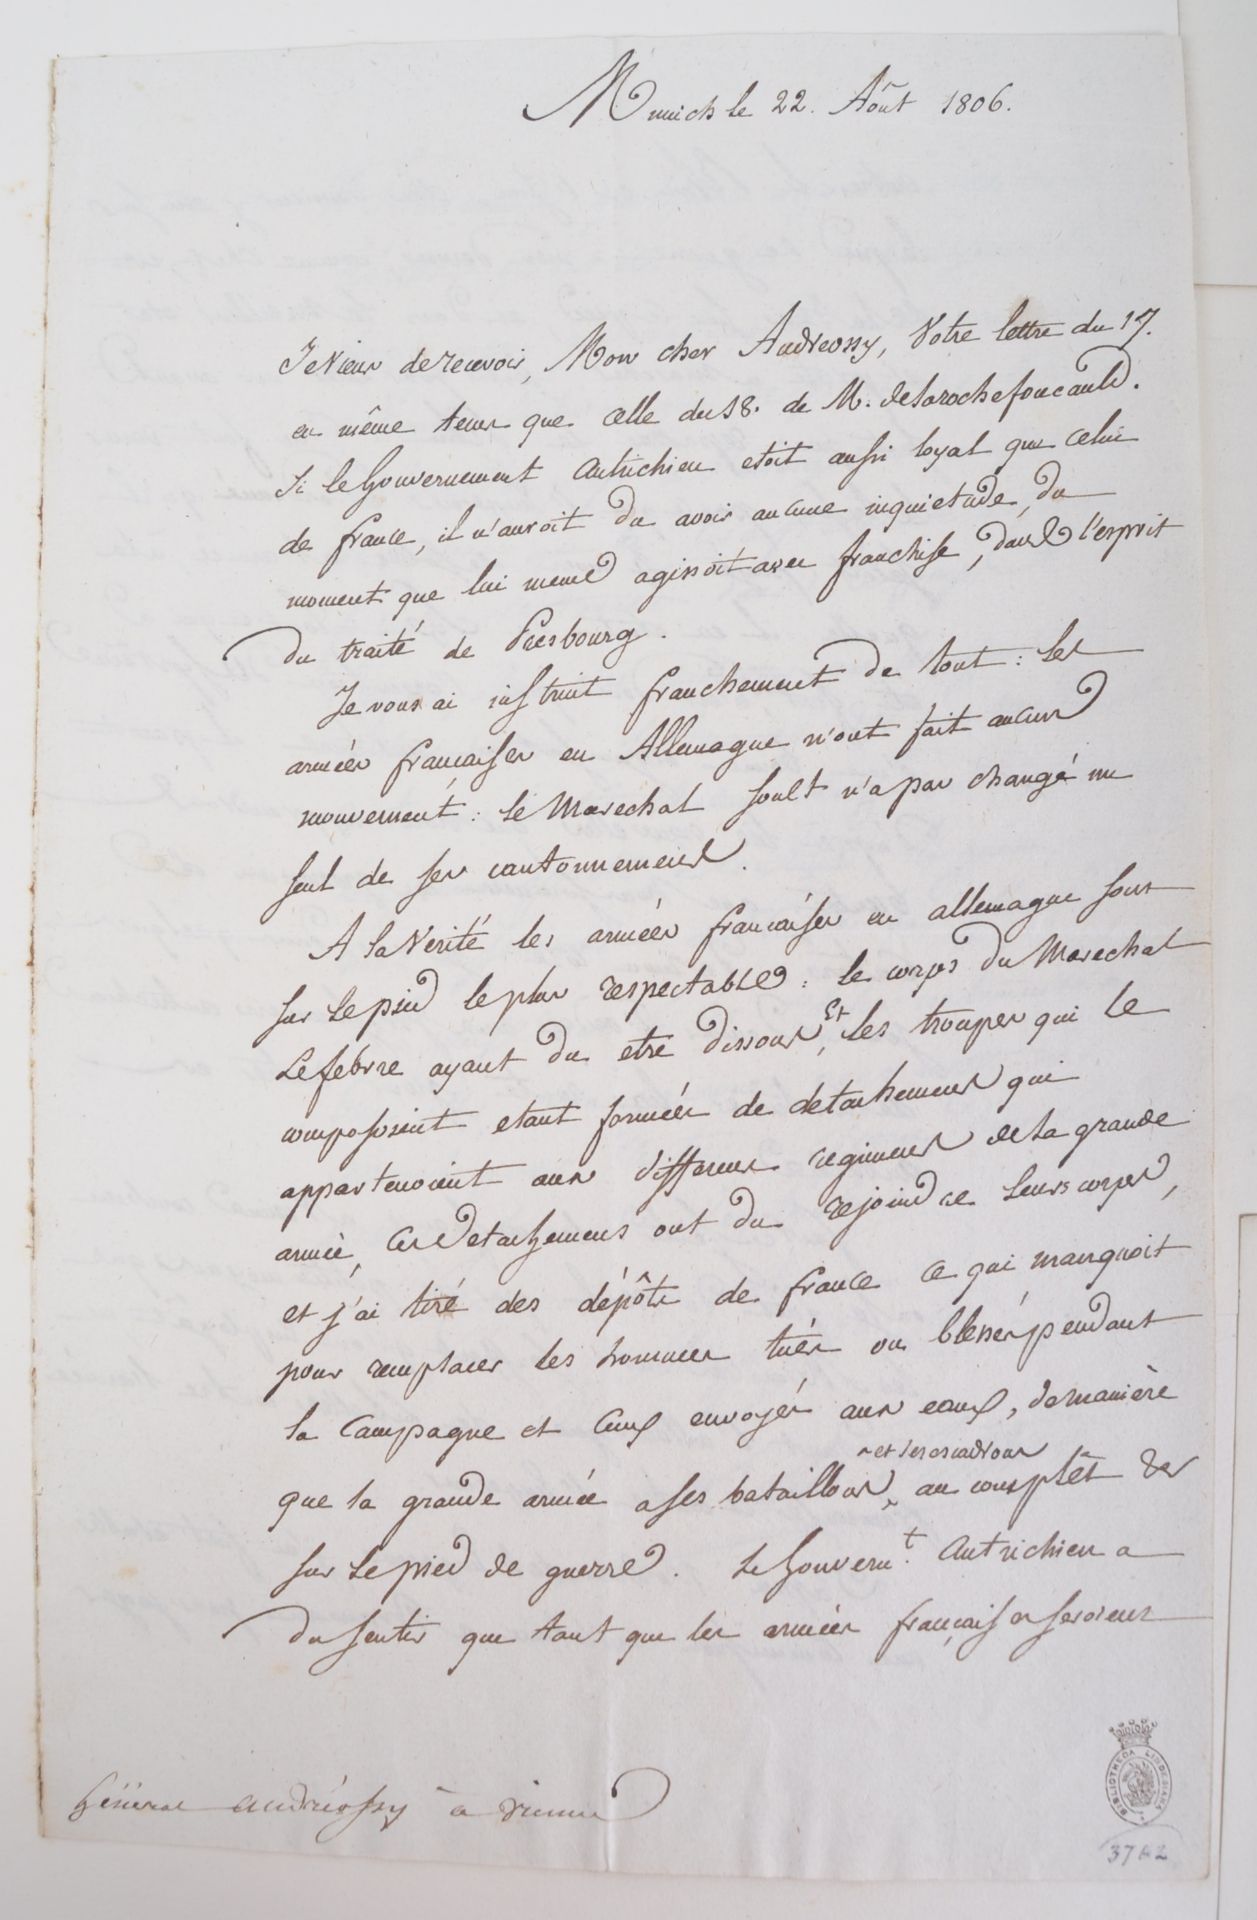 Munich le 22. Août 1806.
Je viens de recevoir, Mon cher Andreossy, votre lettre du 17.
en même tems que celle du 18. de M. de Larochefoucauld.
Si le Gouvernement Autrichien etoit aussi loyal que celui
de france, il n'auroit du avoir aucune inquietude, du
moment que lui meme agissoit avec franchise, dans l'esprit
du traité de Presbourg.
Je vous ai instruit franchement de tout : les
armées francaises en Allemagne n'ont fait aucun
mouvement : le Marechal Soult n'a pas changé un
seul de ses cantonnemens.
A la Verité les armées francaises en allemagne sont
sur le pied le plus respectable : le corps du Marechal
Lefebvre ayant du etre dissous, Et les troupes qui le
composoient etant formées de detachemens qui
appartenoient aux differens regimens de la grande
armée, ces detachemens ont du rejoindre leurs corps,
et j'ai tiré des dépôts de france ce qui manquoit
pour remplacer les hommes tués ou blessés pendant
la Campagne et ceux envoyés aux eaux, de manière
que la grande armée a ses bataillons et ses escadrons au complêt et
sur le pied de guerre. Le Gouvernt. Autrichien a
du sentir que tant que les armées françaises seroient
Général andréossy à vienne
BIBLIOTHECA LINDESIANA
3742